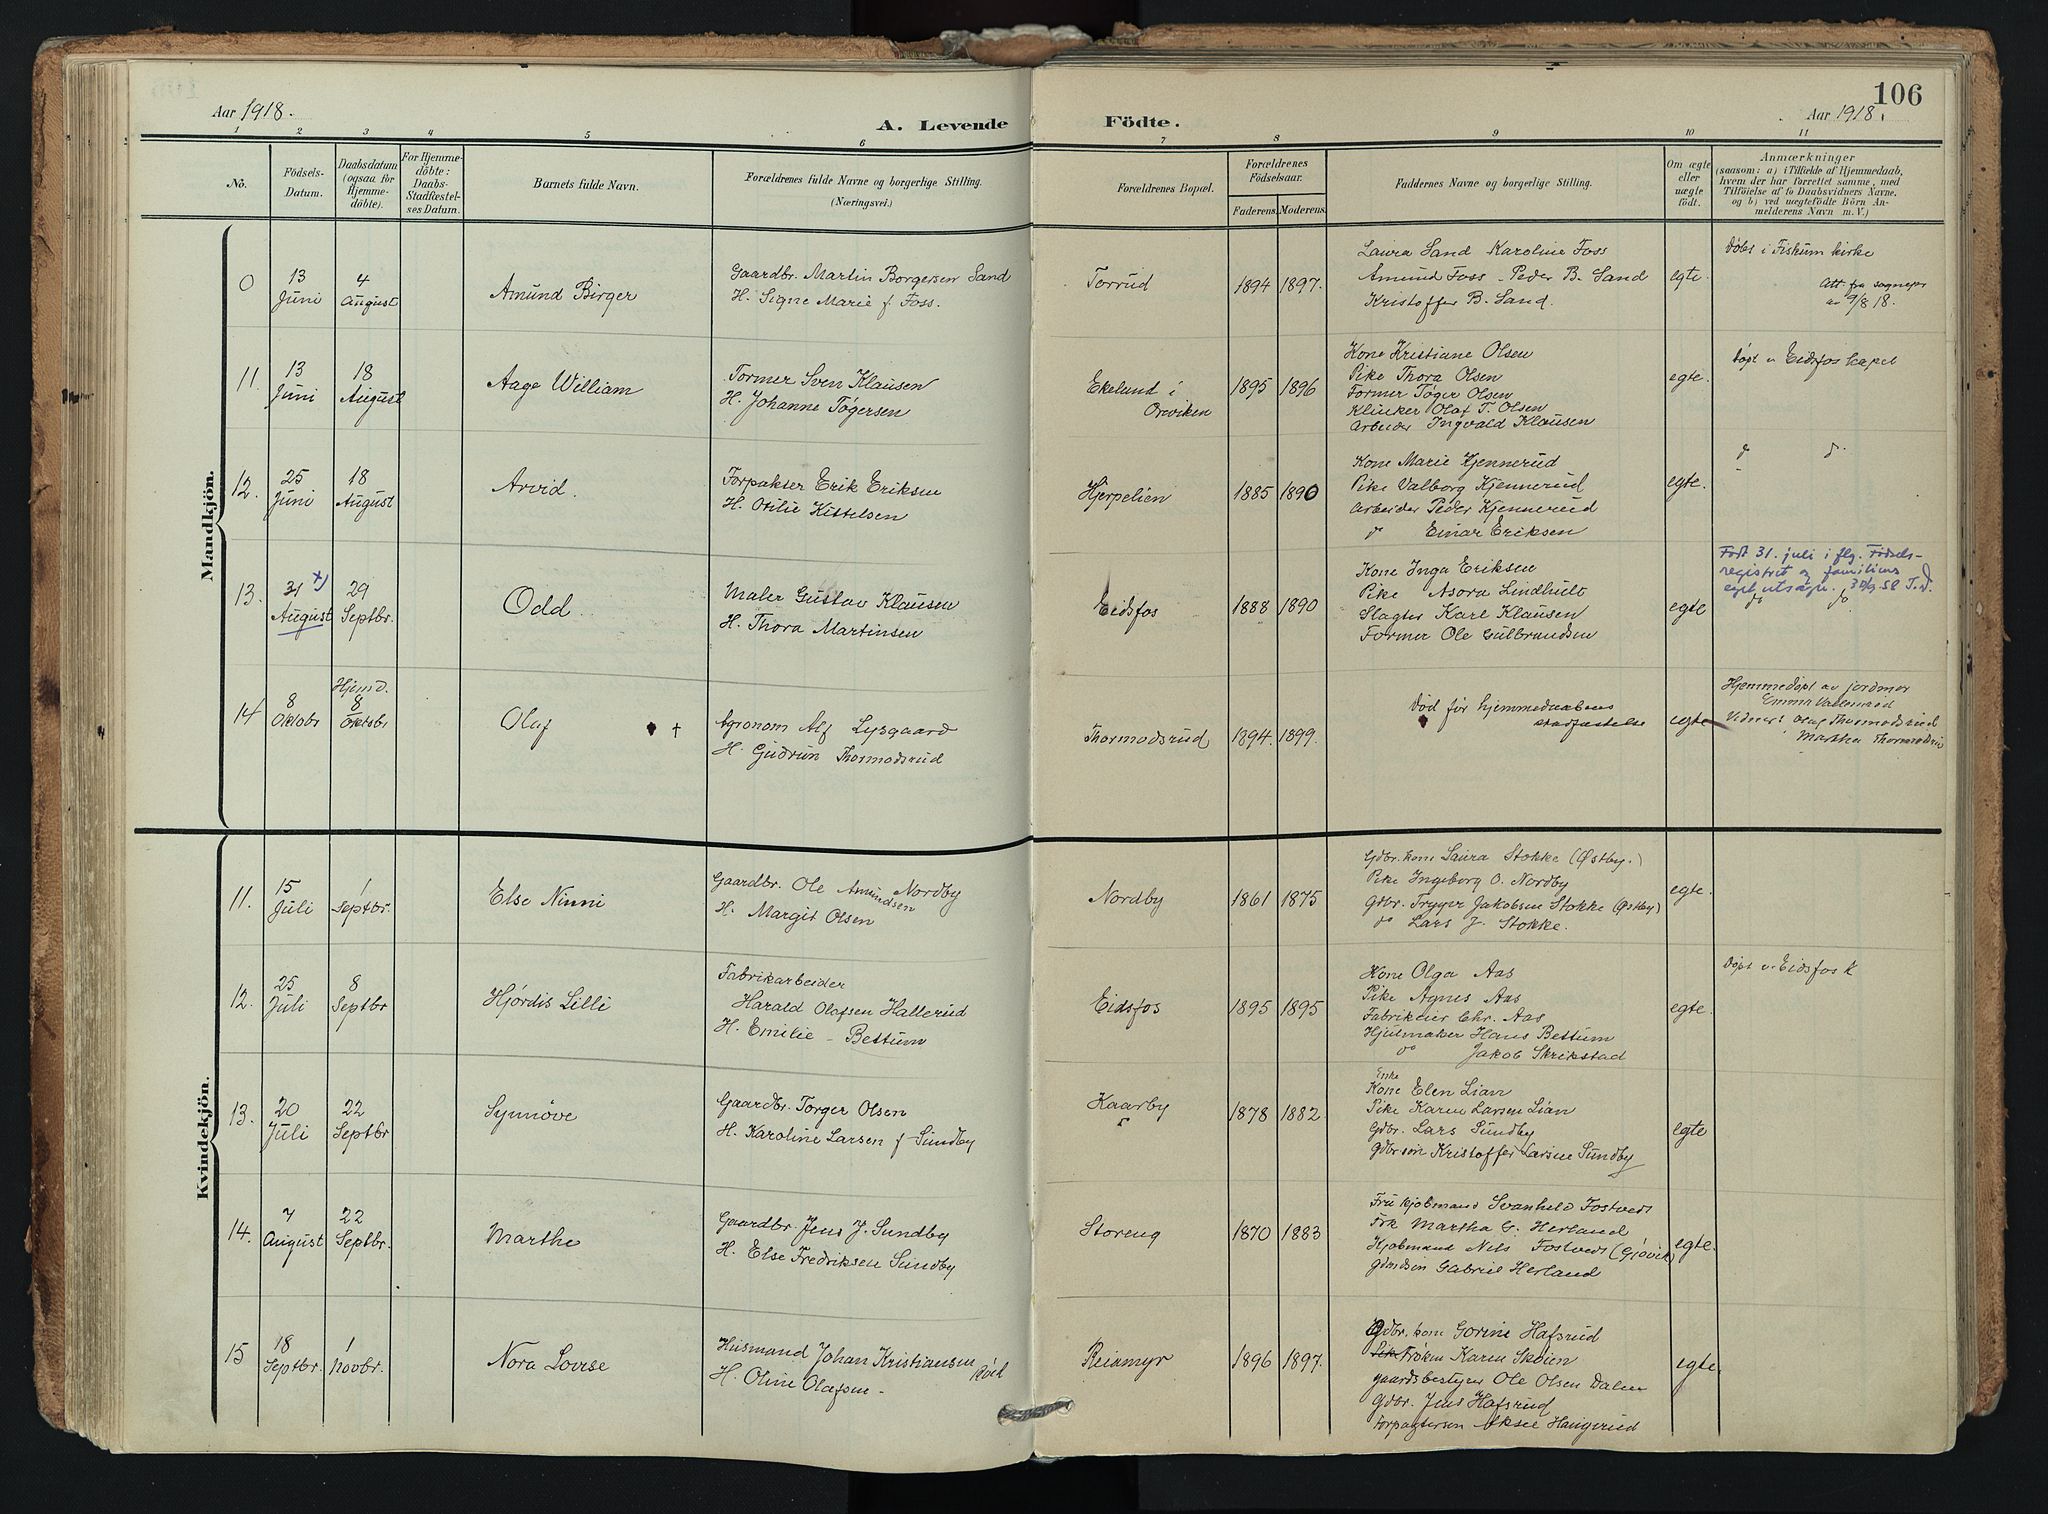 106
Aar 1918.
A. Levende
Födte.
Aar 1918.
1 2 3 4 5 6 7 8 9 10 11
No.
Födsels-
Datum.
Daabsdatum
(ogsaa for
Hjemme-
döbte).
For Hjemme-
döbte:
Daabs-
Stadfæstel-
ses Datum.
Barnets fulde Navn.
Forældrenes fulde Navne og borgerlige Stilling.
(Næringsvei.)
Forældrenes Bopæl.
Forældrenes
Födselsaar.
Faderens. Moderens.
Faddernes Navne og borgerlige Stilling.
Om ægte
eller
uægte
födt.
Anmærkninger
(saasom: a) i Tilfælde af Hjemmedaab,
hvem der har forrettet samme, med
Tilföielse af to Daabsvidners Navne.
og b) ved uægtefödte Börn An-
melderens Navn m. V.)
Mandkjön.
0
13
Juni
4
August
Amund Birger
Gaardbr. Martin Borgersen Sand
H. Signe Marie f. Foss.
Torrud
1894 1897.
Laura Sand Karoline Foss
Amund Foss - Peder B. Sand
Kristoffer B. Sand.
egte.
Døbt i Fiskum kirke
Att. fra sognepr
av 9/8 18.
11.
13
Juni
18
August
Aage William
Former Sven Klausen
H. Johanne Tøgersen
Ekelund i
Oreviken
1895 1896
Kone Kristiane Olsen
Pike Thora Olsen
Former Tøger Olsen
Klinker Olaf T. Olsen
Arbeider Ingvald Klausen
egte.
Døpt v Eidsfos kapel
12.
25
Juni
18
August
Arvid.
Forpakter Erik Eriksen
H. Otilie Kittelsen
Hjerpelien
1885 1890
Kone Marie Kjennerud
Pike Valborg Kjennerud
Arbeider Peder Kjennerud
do Einar Eriksen
egte.
do do
13.
31 x)
August
29
Septbr.
Odd.
Maler Gustav Klausen
H. Thora Martinsen
Eidsfos
1888 1890
Kone Inga Eriksen
Pike Asora Lindhult
Slagter Karl Klausen
Former Ole Gulbrandsen
egte
Født 31. juli i flg. Fødsels-
registret og familiens
eget utsagn. 30/9 58 T.D.
do do
14
8
Oktobr
Hjemd.
8
Oktbr
Olaf †
Agronom Alf Lysgaard
H. Gudrun Thormodsrud
Thormodsrud
1894. 1899.
Død før hjemmedaabens
stadfæstelse
egte
Hjemmedøpt av jordmor
Emma
Vidner: Olaf Thormodsrud
Martha Thormodsrud
Kvindekjön.
11.
15
Juli
1
Septbr.
Else Ninni
Gaardbr. Ole Amundsen Nordby
H. Margit Olsen
Nordby
1861 1875
Gdbr. kone Laura Stokke (Østby.)
Pike Ingeborg O. Nordby
Gdbr. Trygve Jakobsen Stokke (Østby)
do Lars J. Stokke.
egte.
12.
25
Juli
8
Septbr
Hjørdis Lilli
Fabrikarbeider
Harald Olafsen Hallerud
H. Emilie - Bettum
Eidsfos
1895 1895
Kone Olga Aas
Pike Agnes Aas
Fabrikeier Chr. Aas
Hjulmaker Hans Bettum
do Jakob Skrikstad
egte.
Døpt v. Eidsfos K
13.
20
Juli
22
Septbr
Synnøve
Gaardbr. Torger Olsen
H. Karoline Larsen f. Sundby
Kaarby
1878 1882
Enke
Kone Elen Lian
Pike Karen Larsen Lian
Gdbr. Lars Sundby
Gdbrsøn Kristoffer Larsen Sundby
egte
14.
7
August
22
Septbr.
Marthe
Gaardbr. Jens J. Sundby
H. Else Fredriksen Sundby
Storeng
1870 1883
Fru kjøbmand Svanhild Fostvedt
Frk Martha G. Herland
Kjøbmand Nils Fostvedt (Gjøvik)
Gdmdsøn Gabriel Herland
egte.
15
18
Septbr.
1
Novbr.
Nora Lovise
Husmand Johan Kristiansen
H. Oline Olafsen -
Reiamyr
1896 1897.
Gdbr. kone Gorine Hafsrud
Frøken Karen Skøien
gaardsbestyrer Ole Olsen Dalen
Gdbr. Jens Hafsrud
Forpagtersøn Aksel Haugerud
egte.